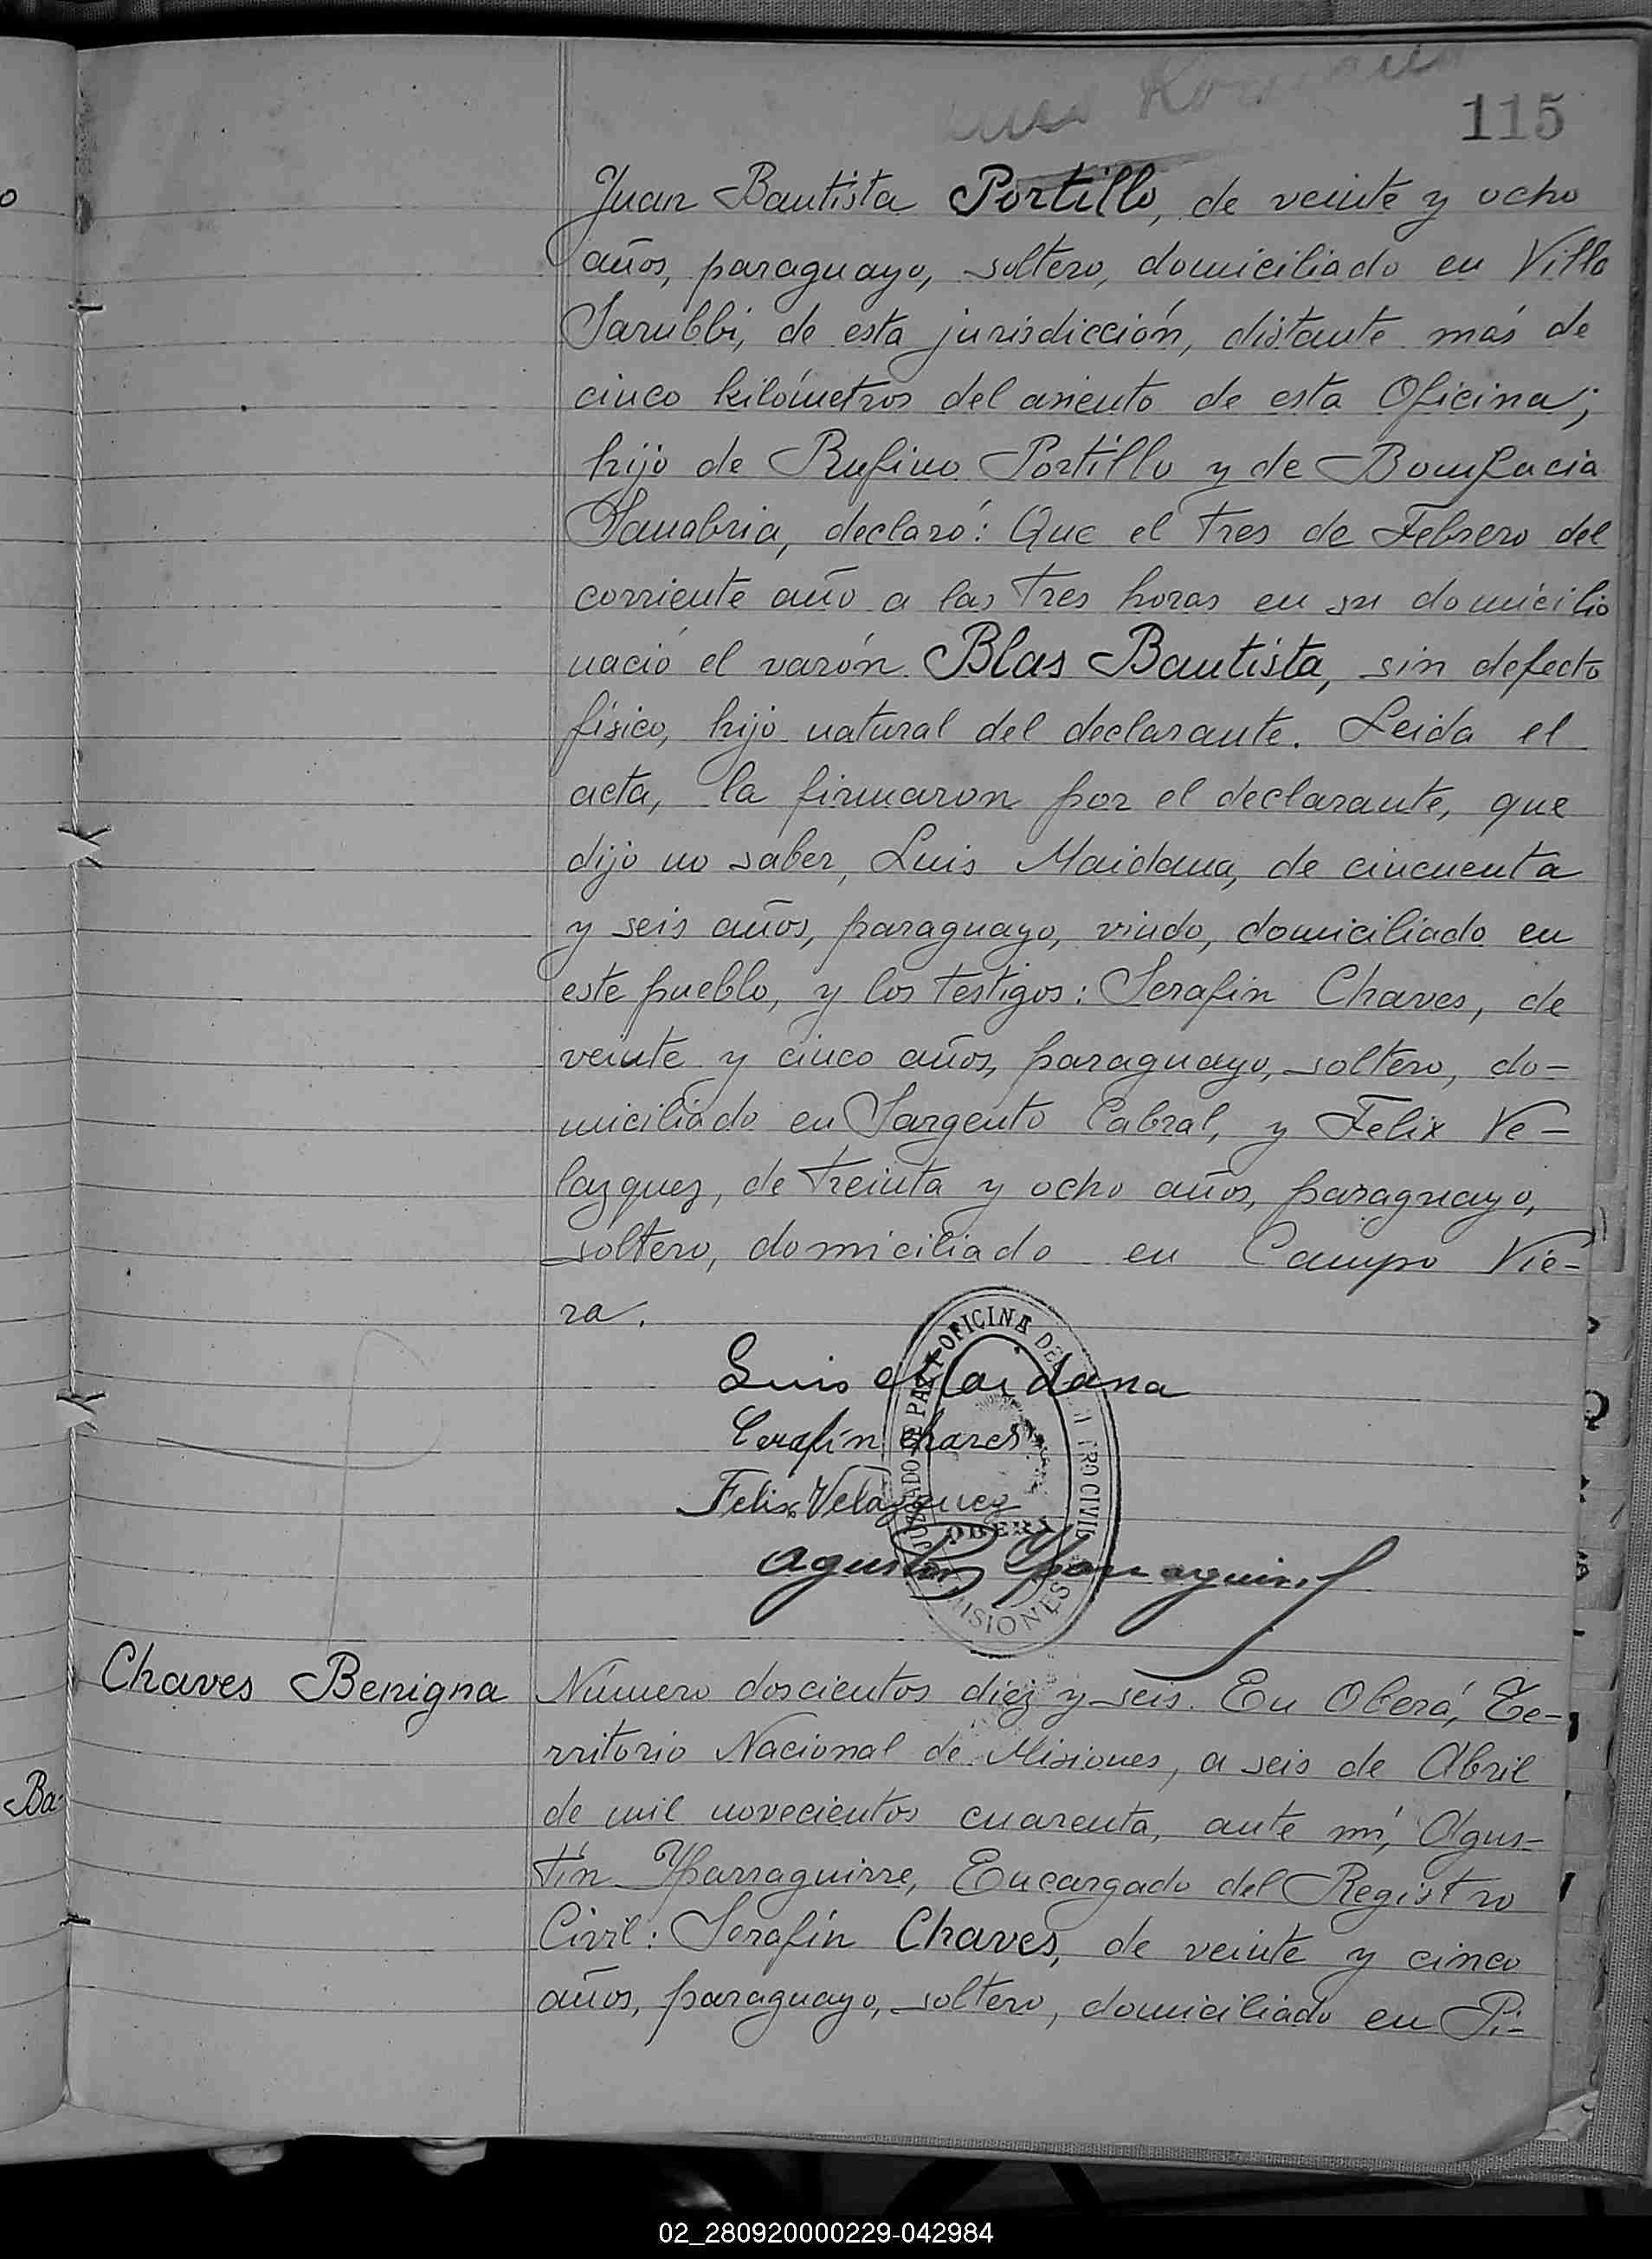 115
Juan Bautista Portillo, de veinte y ocho
años, paraguayo, soltero, domiciliado en Villa
Sarubbi, de esta jurisdicción, distante más de
cinco kilómetros del asiento de esta Oficina;
hijo de Rufino Portillo y de Bonifacia
Sanabria, declaró: Que el tres de Febrero del
corriente año a las tres horas en su domicilio
nació el varón Blas Bautista, sin defecto
físico, hijo natural del declarante. Leida el
acta, la firmaron por el declarante, que
dijo no saber, Luis Maidana, de cincuenta
y seis años, paraguayo, viudo, domiciliado en
este pueblo, y los testigos: Serafin Chaves, de
veinte y cinco años, paraguayo, soltero, do-
miciliado en Sargento Cabral, y Felix Ve-
lazquez, de treinta y ocho años, paraguayo,
soltero, domiciliado en Campo Vie-
ra.
Luis Maidana
Serafín Chaves
Felix Velazquez
Agustín Yparraguirre
JUZGADO DE PAZ Y OFICINA DEL REGISTRO CIVIL
OBERÁ
MISIONES
Chaves Benigna
Número doscientos diez y seis. En Oberá, Te-
rritorio Nacional de Misiones, a seis de Abril
de mil novecientos cuarenta, ante mí, Agus-
Ba-
tín Yparraguirre, Encargado del Registro
Civil: Serafín Chaves, de veinte y cinco
años, paraguayo, soltero, domiciliado en Pi-
02_280920000229-042984